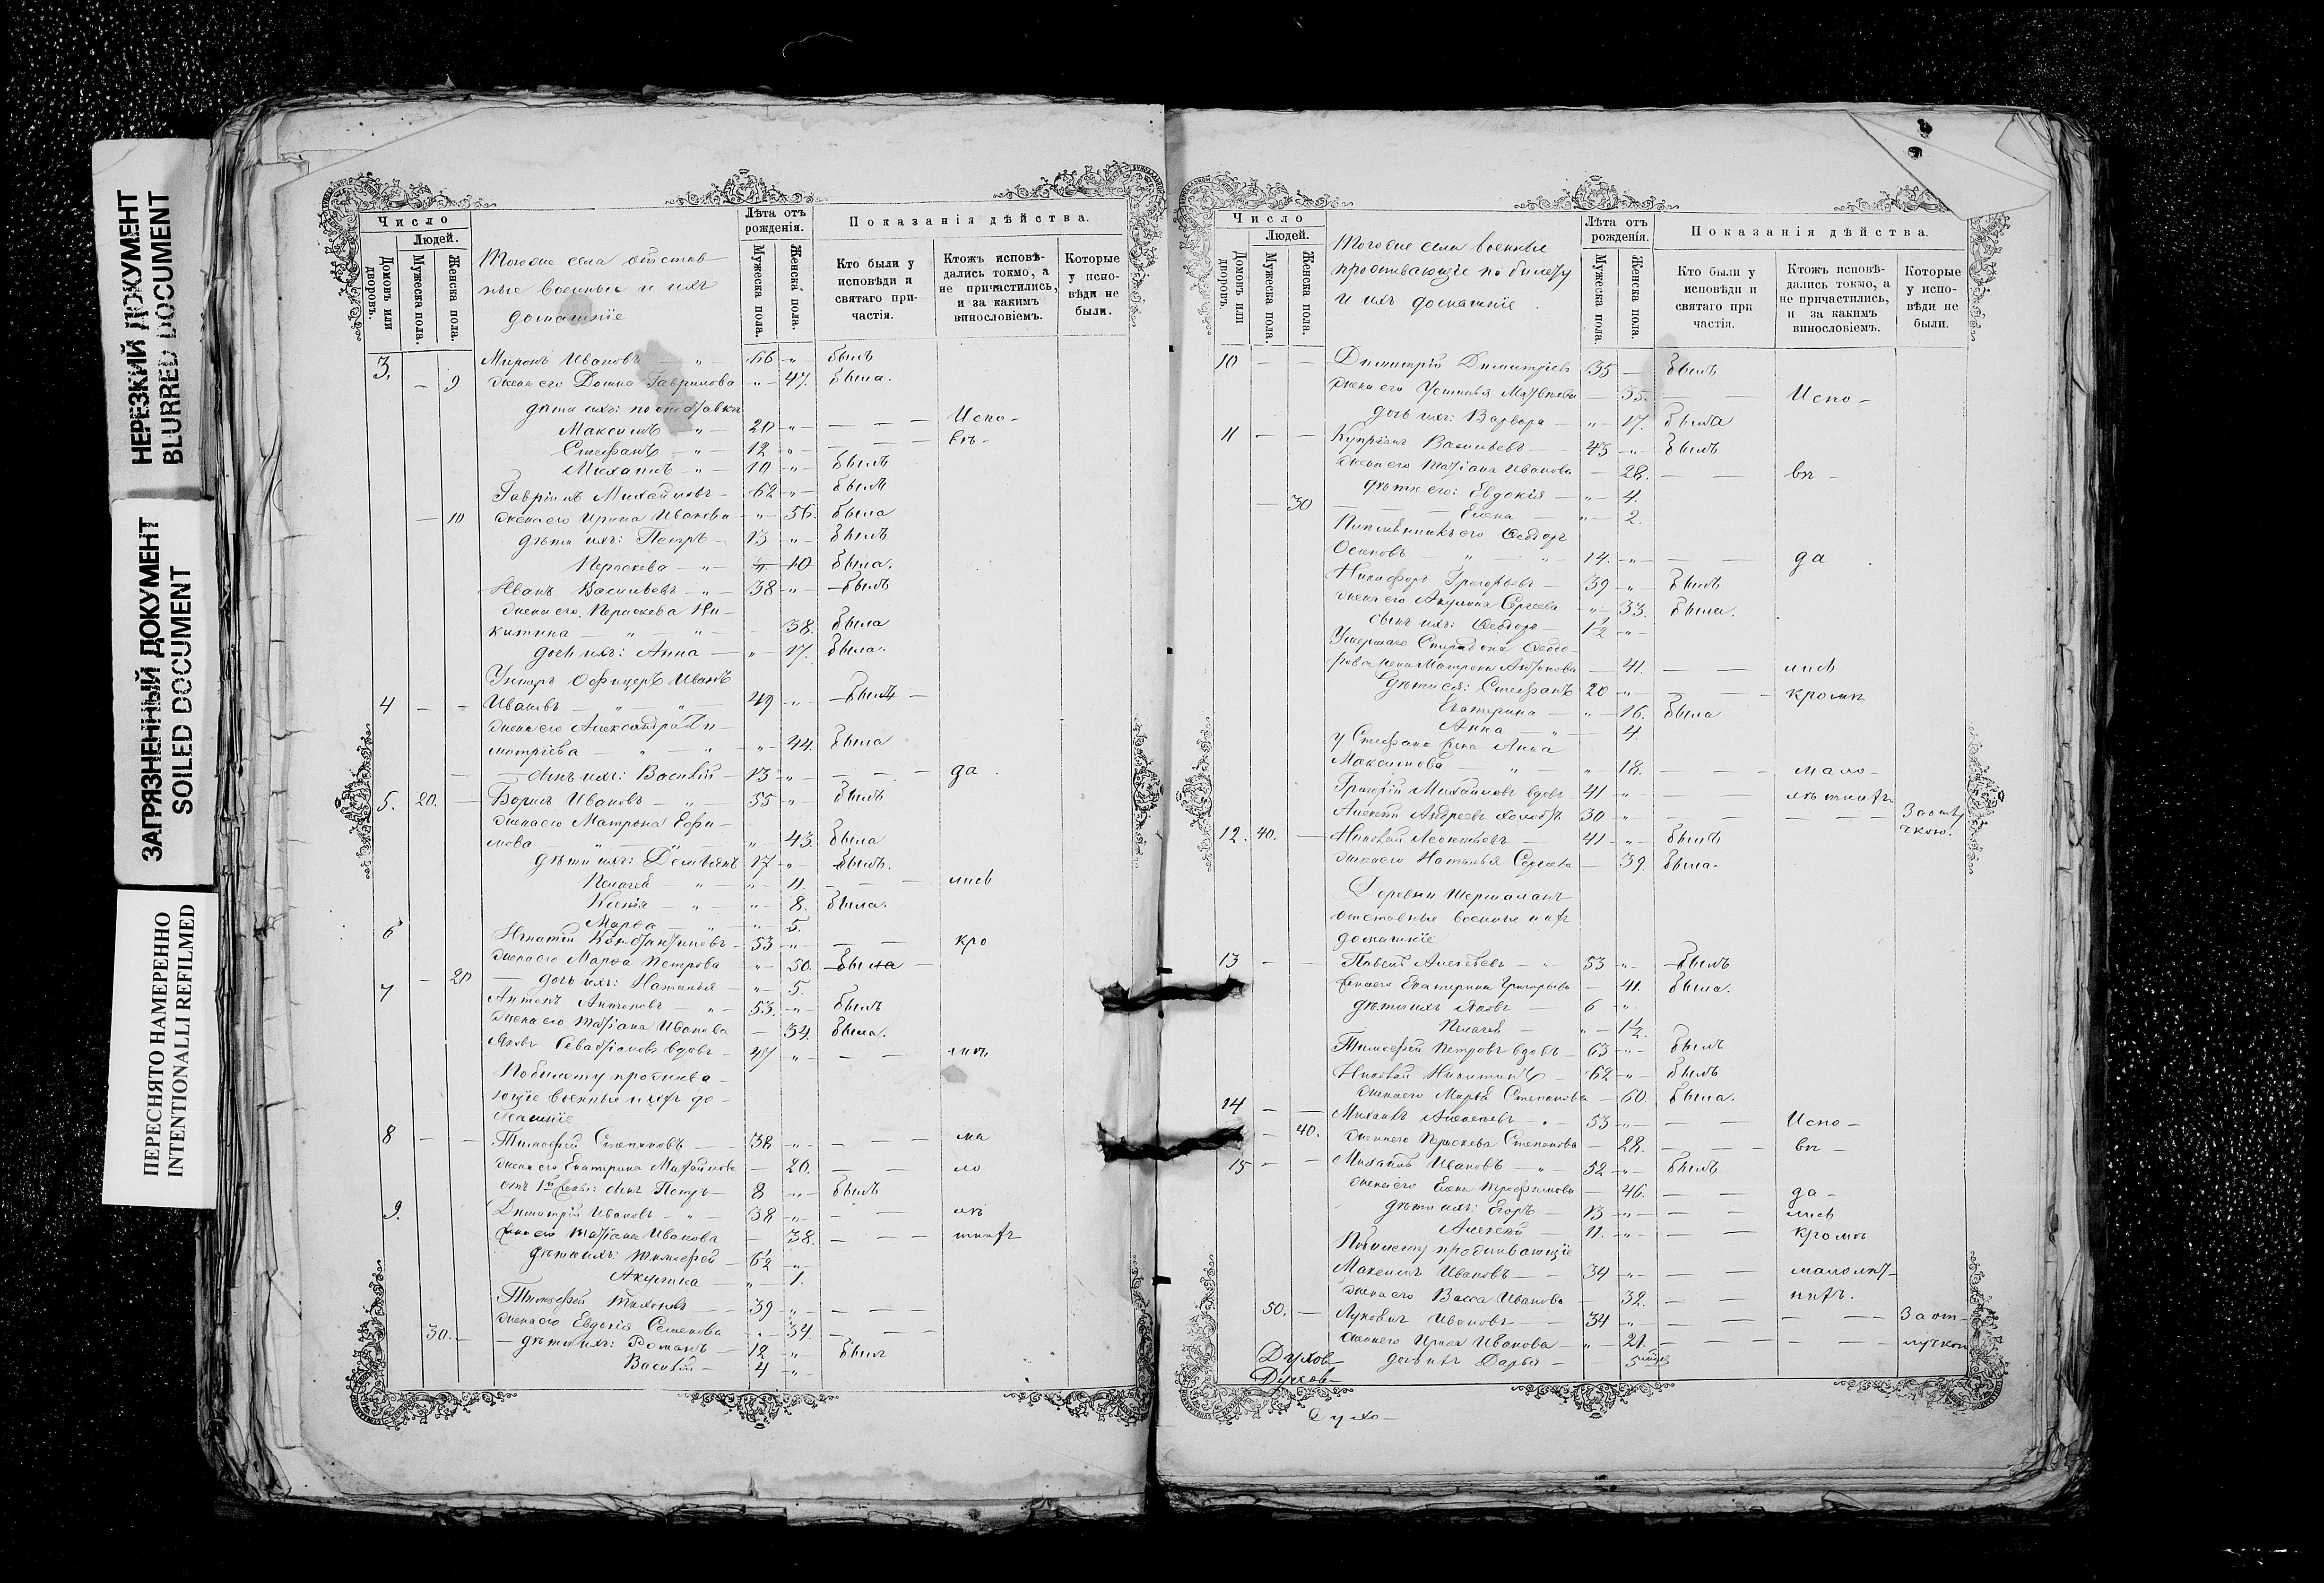 НЕРЕЗКИЙ ДОКУМЕНТ
BLURRED DOCUMENT
ЗАГРЯЗНЕННЫЙ ДОКУМЕНТ
SOILED DOCUMENT
ПЕРЕСНЯТО НАМЕРЕННО
INTENTIONALLI REFILMED
Число
Людей.
Домовъ или дворовъ.
Мужеска пола.
Женска пола.
Тогоже села отстав-
ные военные и ихъ
домашніе
Лѣта отъ рожденія.
Мужеска пола.
Женска пола.
Показанія дѣйства.
Кто были у исповѣди и святаго причастія.
Ктожъ исповѣдались токмо, а не причастились, и за какимъ винословіемъ.
Которые у исповѣди не были.
3. Миронъ Ивановъ — " — 66 — " — былъ
— 9 жена его Домна Гаврилова — " — 47. была.
дѣти ихъ:
Максимъ — " — 20 — " — — — Испо-
Стефанъ — " — 12 — " — — — вѣ-
Михаилъ — " — 10 — " — былъ
Гавріилъ Михайловъ — 62 — " — былъ
— 10 жена его Ирина Иванова — " — 56. была
дѣти ихъ: Петръ — 13 — " — былъ
Параскева — " — 10 была.
Иванъ Васильевъ — " — 38 — " — былъ
жена его Параскева Ни-
китина — " — " — 38. была
дочь ихъ: Анна — " — 17. была.
Унтеръ Офицеръ Иванъ
4 — — Ивановъ — " — " — 49 — " — былъ —
жена его Александра Ди-
митріева — " — " — " — 44. была
— сынъ ихъ: Василій — 13 — " — — — да
5. 20. — Борисъ Ивановъ — " — 55 — " — былъ
жена его Матрона Ефи-
мова — " — " — 43. была
дѣти ихъ: Демьянъ 17 — " — былъ.
Пелагея — " — " — 11. — — лись
Ксенія — " — " — 8. была.
Марѳа — " — " — 5.
6 Игнатій Константиновъ — 53 — " — — — кро
жена его Марѳа Петрова — " — 50. была —
— 20 дочь ихъ: Наталья — " — 5.
7 Антонъ Антоновъ — " — 53. — " — былъ
жена его Татіана Иванова — 34. была.
Яковъ Севастіановъ вдовъ — 47 — " — — —
По билету прожива-
ющіе военные и ихъ до-
машніе
8 — — Тимофей Степановъ — 38 — " — — — ма
жена его Екатерина Михайлова — 20. — — ло
Петръ — 8 — " — былъ
9. Димитрій Ивановъ — " — 38 — " — — — лѣ
жена его Татіана Иванова — 38. — — — тнихъ
дѣти ихъ: Тимофей — 6½ — " —
Акулина — " — 1.
Тимофей Тихоновъ — 39 — " — — — —
жена его Евдокія Семенова — " — 34. — — —
30. — дѣти ихъ: Романъ — 12 — " — былъ
Василій — 4 — " —
Число
Людей.
Домовъ или дворовъ.
Мужеска пола.
Женска пола.
Тогоже села военные
проживающіе по билету
и ихъ домашніе
Лѣта отъ рожденія.
Мужеска пола.
Женска пола.
Показанія дѣйства.
Кто были у исповѣди и святаго при частія.
Ктожъ исповѣдались токмо, а не причастились, и за какимъ винословіемъ.
Которые у исповѣди не были.
10 — — Димитрій Димитріевъ 35 — былъ
жена его Устинья Матвѣева — 35. — — Испо-
дочь ихъ: Варвара — " — 17. была
11 — — Купріянъ Васильевъ — 45 — " — былъ
жена его Татіана Иванова — 28. — — вѣ —
дѣти его: Евдокія — " — 4.
— 30 Елена — " — 2.
Ѳеодоръ
Осиповъ " — " 14. — " — — — да
Никифоръ Григорьевъ — 39 — " — былъ
жена его Акулина Сергеева — " — 33. была.
сынъ ихъ: Ѳеодоръ — 1½ — " —
Умершаго Спиридона Ѳеодо-
рова жена Матрона Антонова — 41. — — лись
дѣти ея: Стефанъ 20 — " — — — кромѣ
Екатерина — " — 16. была
Анна — " — 4.
у Стефана жена Анна
Максимова — " — " — 18. — — — мало-
Григорій Михайловъ вдовъ 41 — " — — — лѣтнихъ
Алексѣй Андреевъ холостъ 30 — " — — — — — За отлу
12. 40. — Николай Леонтьевъ — 41 — " — былъ чкою.
жена его Наталья Сергеева — 39. была.
Деревни
отставные военные и ихъ
домашніе
13 — — Павелъ Алексѣевъ — " — 53 — " — былъ
жена его Екатерина Григорьева — 41. была.
дѣти ихъ Яковъ — 6 — " —
Пелагея — " — 1½.
Тимофей Петровъ вдовъ — 63 — " — былъ
Николай Никитинъ — 62 — " — былъ
жена его Марѳа Степанова — 60 была.
14 — — Михаилъ Алексѣевъ — " — 53 — " — — — Испо-
— 40. жена его Параскева Степанова — 28. — — — вѣ —
15 — — Михаилъ Ивановъ — " — 52 — " — былъ
жена его Елена Трофимова — 46. — — да —
дѣти ихъ: Егоръ — 13 — " — — — лись
Алексѣй 11. — " — — — кромѣ
По билету проживающіе
Максимъ Ивановъ — — 34 — " — — — малолѣт-
жена его Васса Иванова — 32. — — нихъ.
50. — Ивановъ — — 34 — " — — — — — За от-
жена его Ирина Иванова — " — 21. — — — — — лучкою
Духов- дочь ихъ Дарья —
Духов-
Духо-